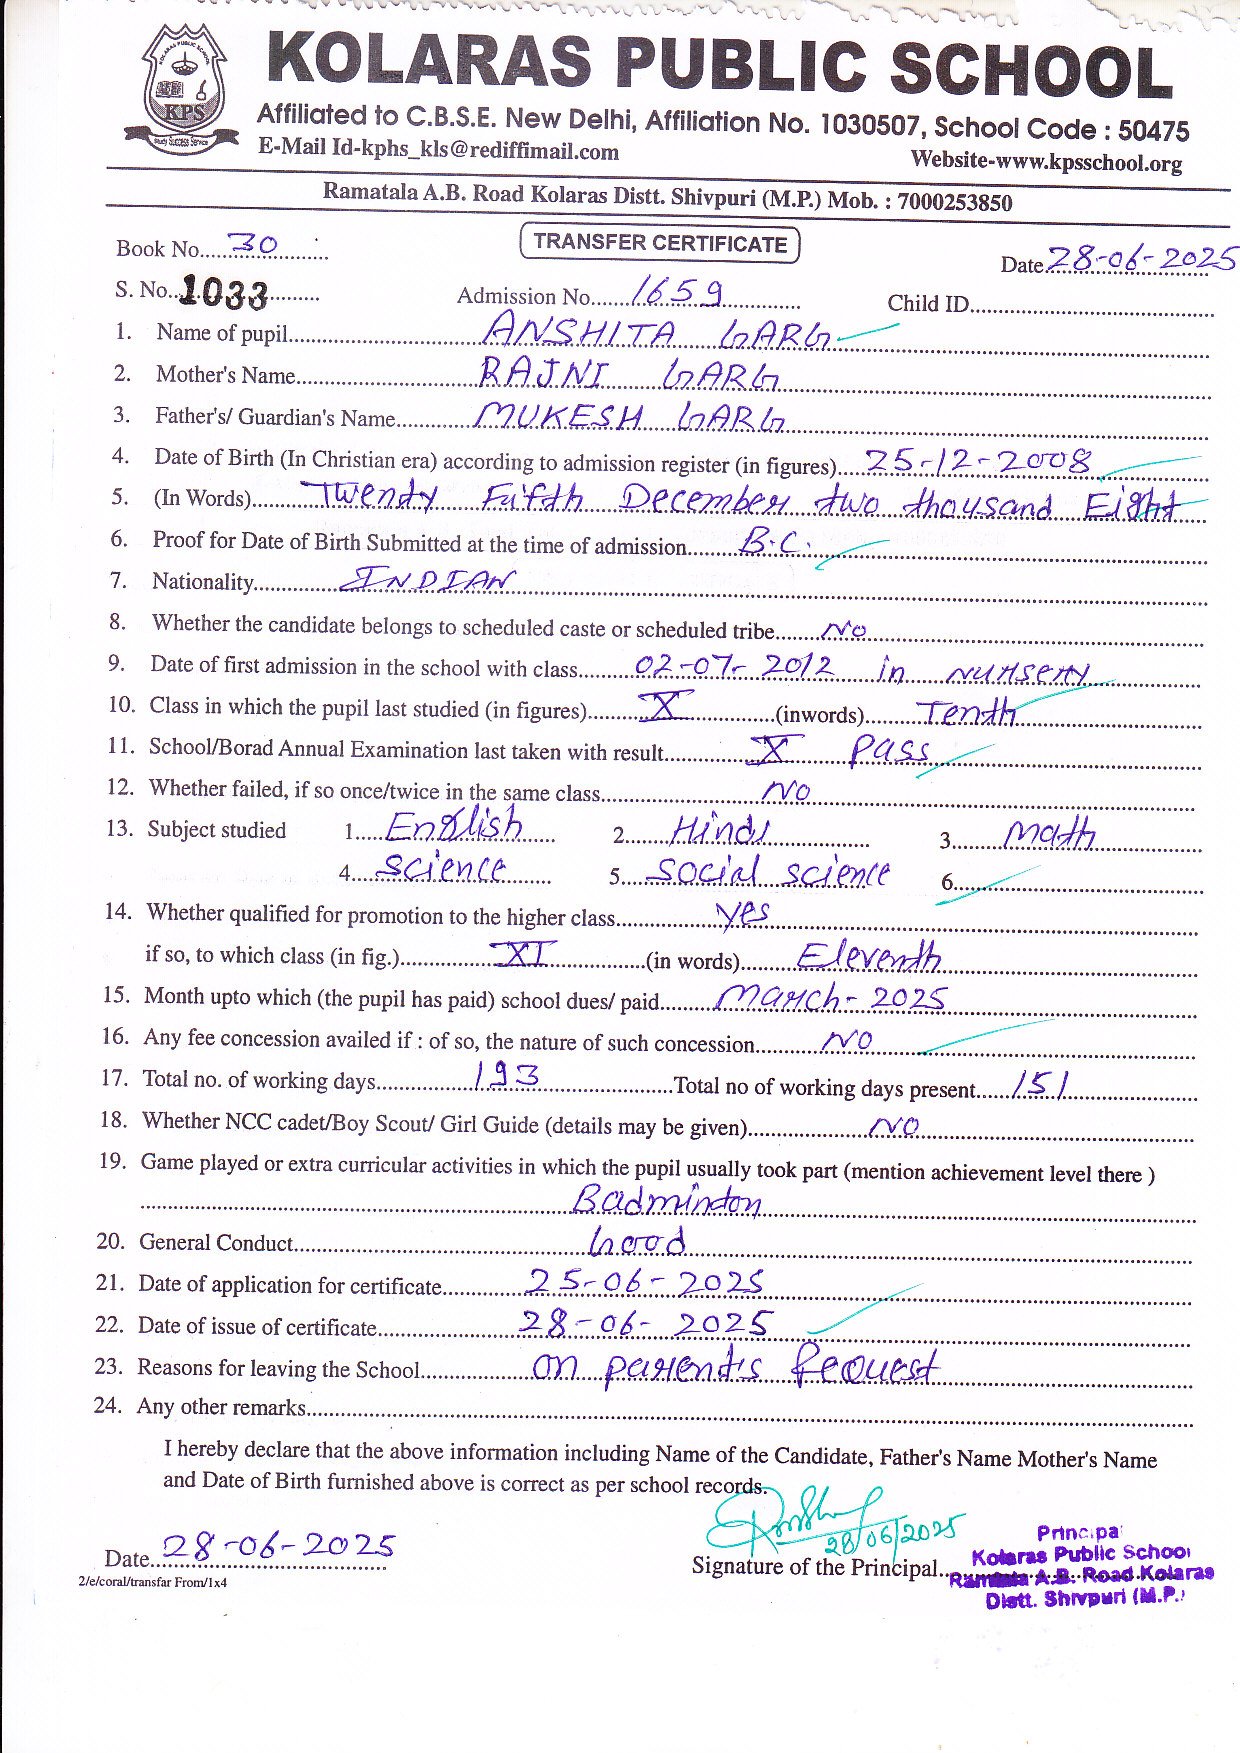 KOLARAS PUBLIC SCHOOL
KPS
Study Success Service
Affiliated to C.B.S.E. New Delhi, Affiliation No. 1030507, School Code : 50475
E-Mail Id-kphs_kls@rediffimail.com Website-www.kpsschool.org
Ramatala A.B. Road Kolaras Distt. Shivpuri (M.P.) Mob. : 7000253850
Book No. 30 TRANSFER CERTIFICATE Date 28-06-2025
S. No. 1033 Admission No. 1659 Child ID
1. Name of pupil ANSHITA GARG
2. Mother's Name RAJNI GARG
3. Father's/ Guardian's Name MUKESH GARG
4. Date of Birth (In Christian era) according to admission register (in figures) 25-12-2008
5. (In Words) Twendy Fifth December two thousand Eight
6. Proof for Date of Birth Submitted at the time of admission B.C.
7. Nationality INDIAN
8. Whether the candidate belongs to scheduled caste or scheduled tribe NO
9. Date of first admission in the school with class 02-07-2012 in nursery
10. Class in which the pupil last studied (in figures) X (inwords) Tenth
11. School/Borad Annual Examination last taken with result X Pass
12. Whether failed, if so once/twice in the same class NO
13. Subject studied 1. English 2. Hindi 3. Math
4. Science 5. Social science 6.
14. Whether qualified for promotion to the higher class yes
if so, to which class (in fig.) XI (in words) Eleventh
15. Month upto which (the pupil has paid) school dues/ paid March-2025
16. Any fee concession availed if : of so, the nature of such concession NO
17. Total no. of working days 193 Total no of working days present 151
18. Whether NCC cadet/Boy Scout/ Girl Guide (details may be given) NO
19. Game played or extra curricular activities in which the pupil usually took part (mention achievement level there )
Badminton
20. General Conduct Good
21. Date of application for certificate 25-06-2025
22. Date of issue of certificate 28-06-2025
23. Reasons for leaving the School on parents request
24. Any other remarks
I hereby declare that the above information including Name of the Candidate, Father's Name Mother's Name
and Date of Birth furnished above is correct as per school records.
28/06/2025
Date 28-06-2025 Signature of the Principal
Principal
Kolaras Public School
Ramtala A.B. Road Kolaras
Distt. Shivpuri (M.P.)
2/e/coral/transfar From/1x4